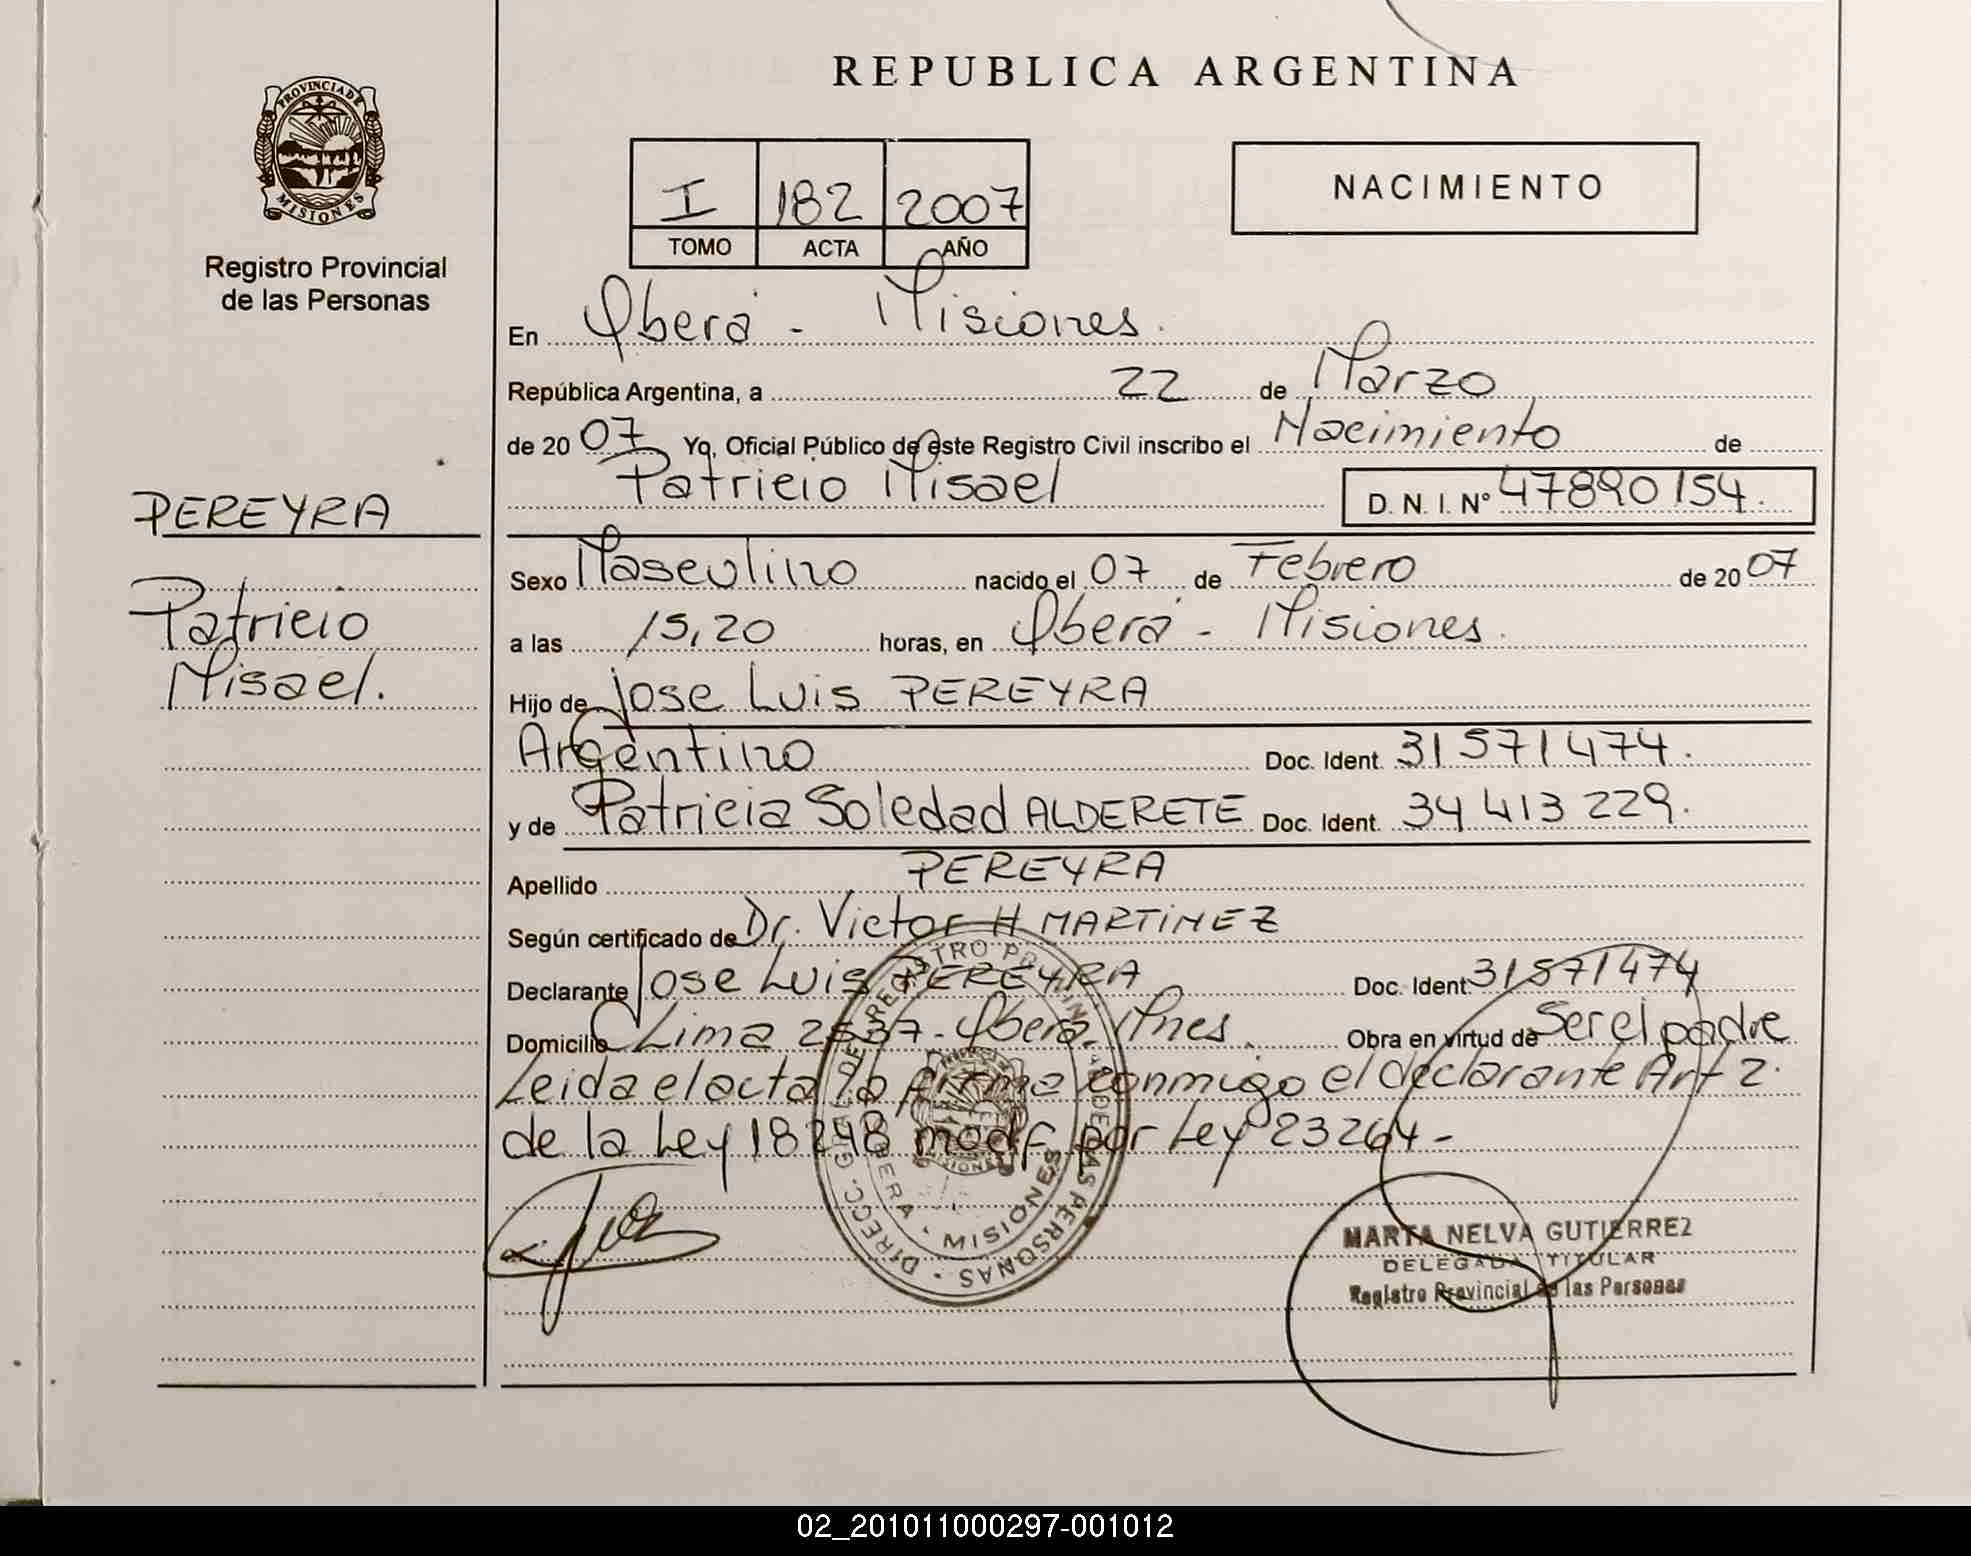 REPUBLICA ARGENTINA
PROVINCIA DE
MISIONES
Registro Provincial
de las Personas
I 182 2007
TOMO ACTA AÑO
NACIMIENTO
En Oberá - Misiones.
República Argentina, a 22 de Marzo
de 20 07 Yo, Oficial Público de este Registro Civil inscribo el Nacimiento de
Patricio Misael D. N. I. Nº 47890154.
PEREYRA
Patricio
Misael.
Sexo Masculino nacido el 07 de Febrero de 20 07
a las 15,20 horas, en Oberá - Misiones.
Hijo de Jose Luis PEREYRA
Argentino Doc. Ident. 31571474.
y de Patricia Soledad ALDERETE Doc. Ident. 34413229.
Apellido PEREYRA
Según certificado de Dr. Victor H MARTINEZ
Declarante Jose Luis PEREYRA Doc. Ident. 31571474
Domicilio Lima 2537 - Oberá, Mnes. Obra en virtud de Ser el padre
Leida el acta la firma conmigo el declarante Art 2.
de la Ley 18248 modf por Ley 23264 -
DIRECC. GRAL. DE REGISTRO PROVINCIAL DE LAS PERSONAS
OBERA - MISIONES
MARTA NELVA GUTIERREZ
DELEGADA TITULAR
Registro Provincial de las Personas
02_201011000297-001012